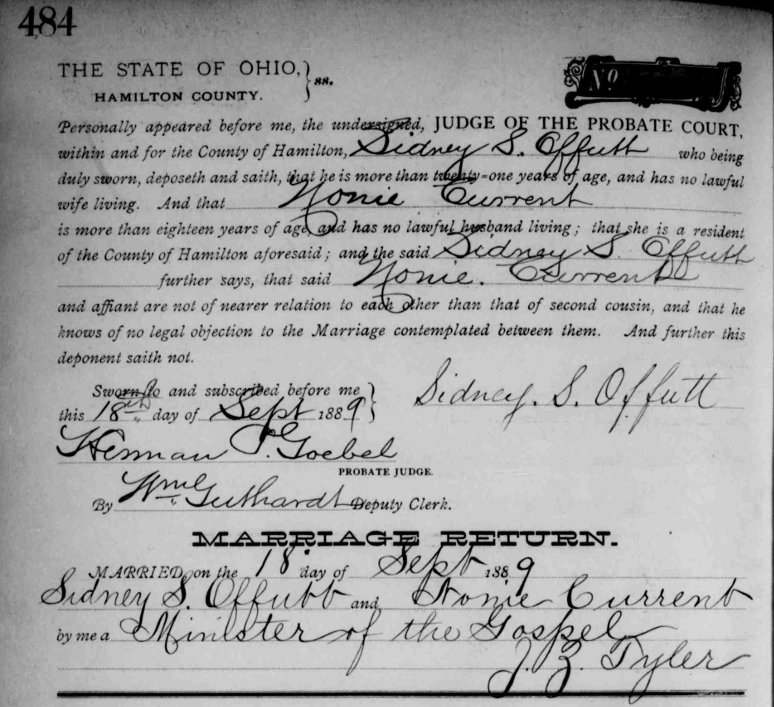 484
THE STATE OF OHIO, } ss.
HAMILTON COUNTY.
No
Personally appeared before me, the undersigned, JUDGE OF THE PROBATE COURT,
within and for the County of Hamilton, Sidney S. Offutt who being
duly sworn, deposeth and saith, that he is more than twenty-one years of age, and has no lawful
wife living. And that Nonie Current
is more than eighteen years of age and has no lawful husband living; that she is a resident
of the County of Hamilton aforesaid; and the said Sidney S. Offutt
further says, that said Nonie. Current
and affiant are not of nearer relation to each other than that of second cousin, and that he
knows of no legal objection to the Marriage contemplated between them. And further this
deponent saith not.
Sworn to and subscribed before me }
this 18th day of Sept 1889 }
Sidney. S. Offutt
Herman P. Goebel
PROBATE JUDGE.
By Wm Guthardt Deputy Clerk.
MARRIAGE RETURN.
MARRIED, on the 18 day of Sept 1889
Sidney S. Offutt and Nonie Current
by me a Minister of the Gospel
J. Z. Tyler